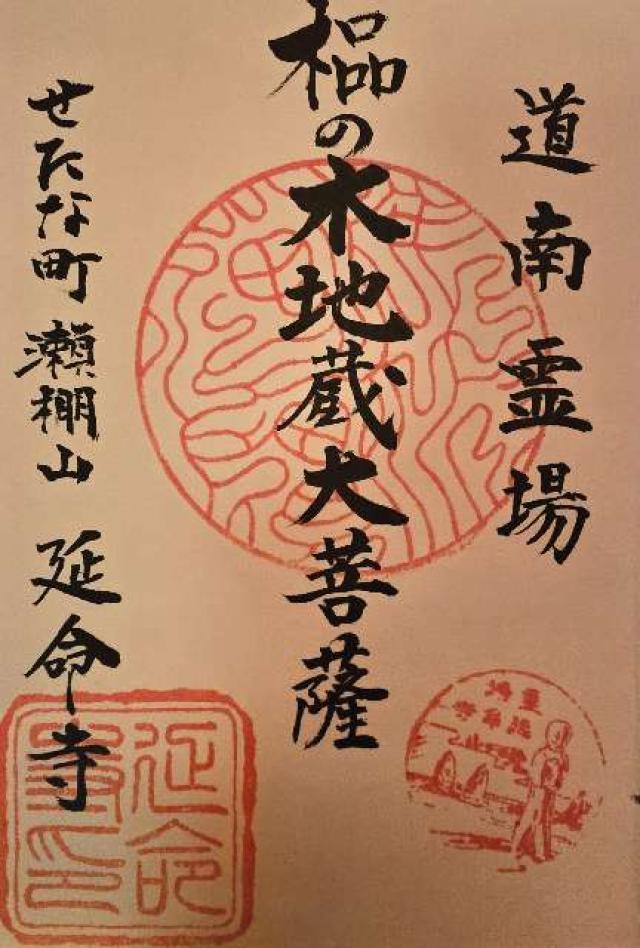 道南霊場
榀の木地蔵大菩薩
せたな町 瀬棚山 延命寺
延命
寺印